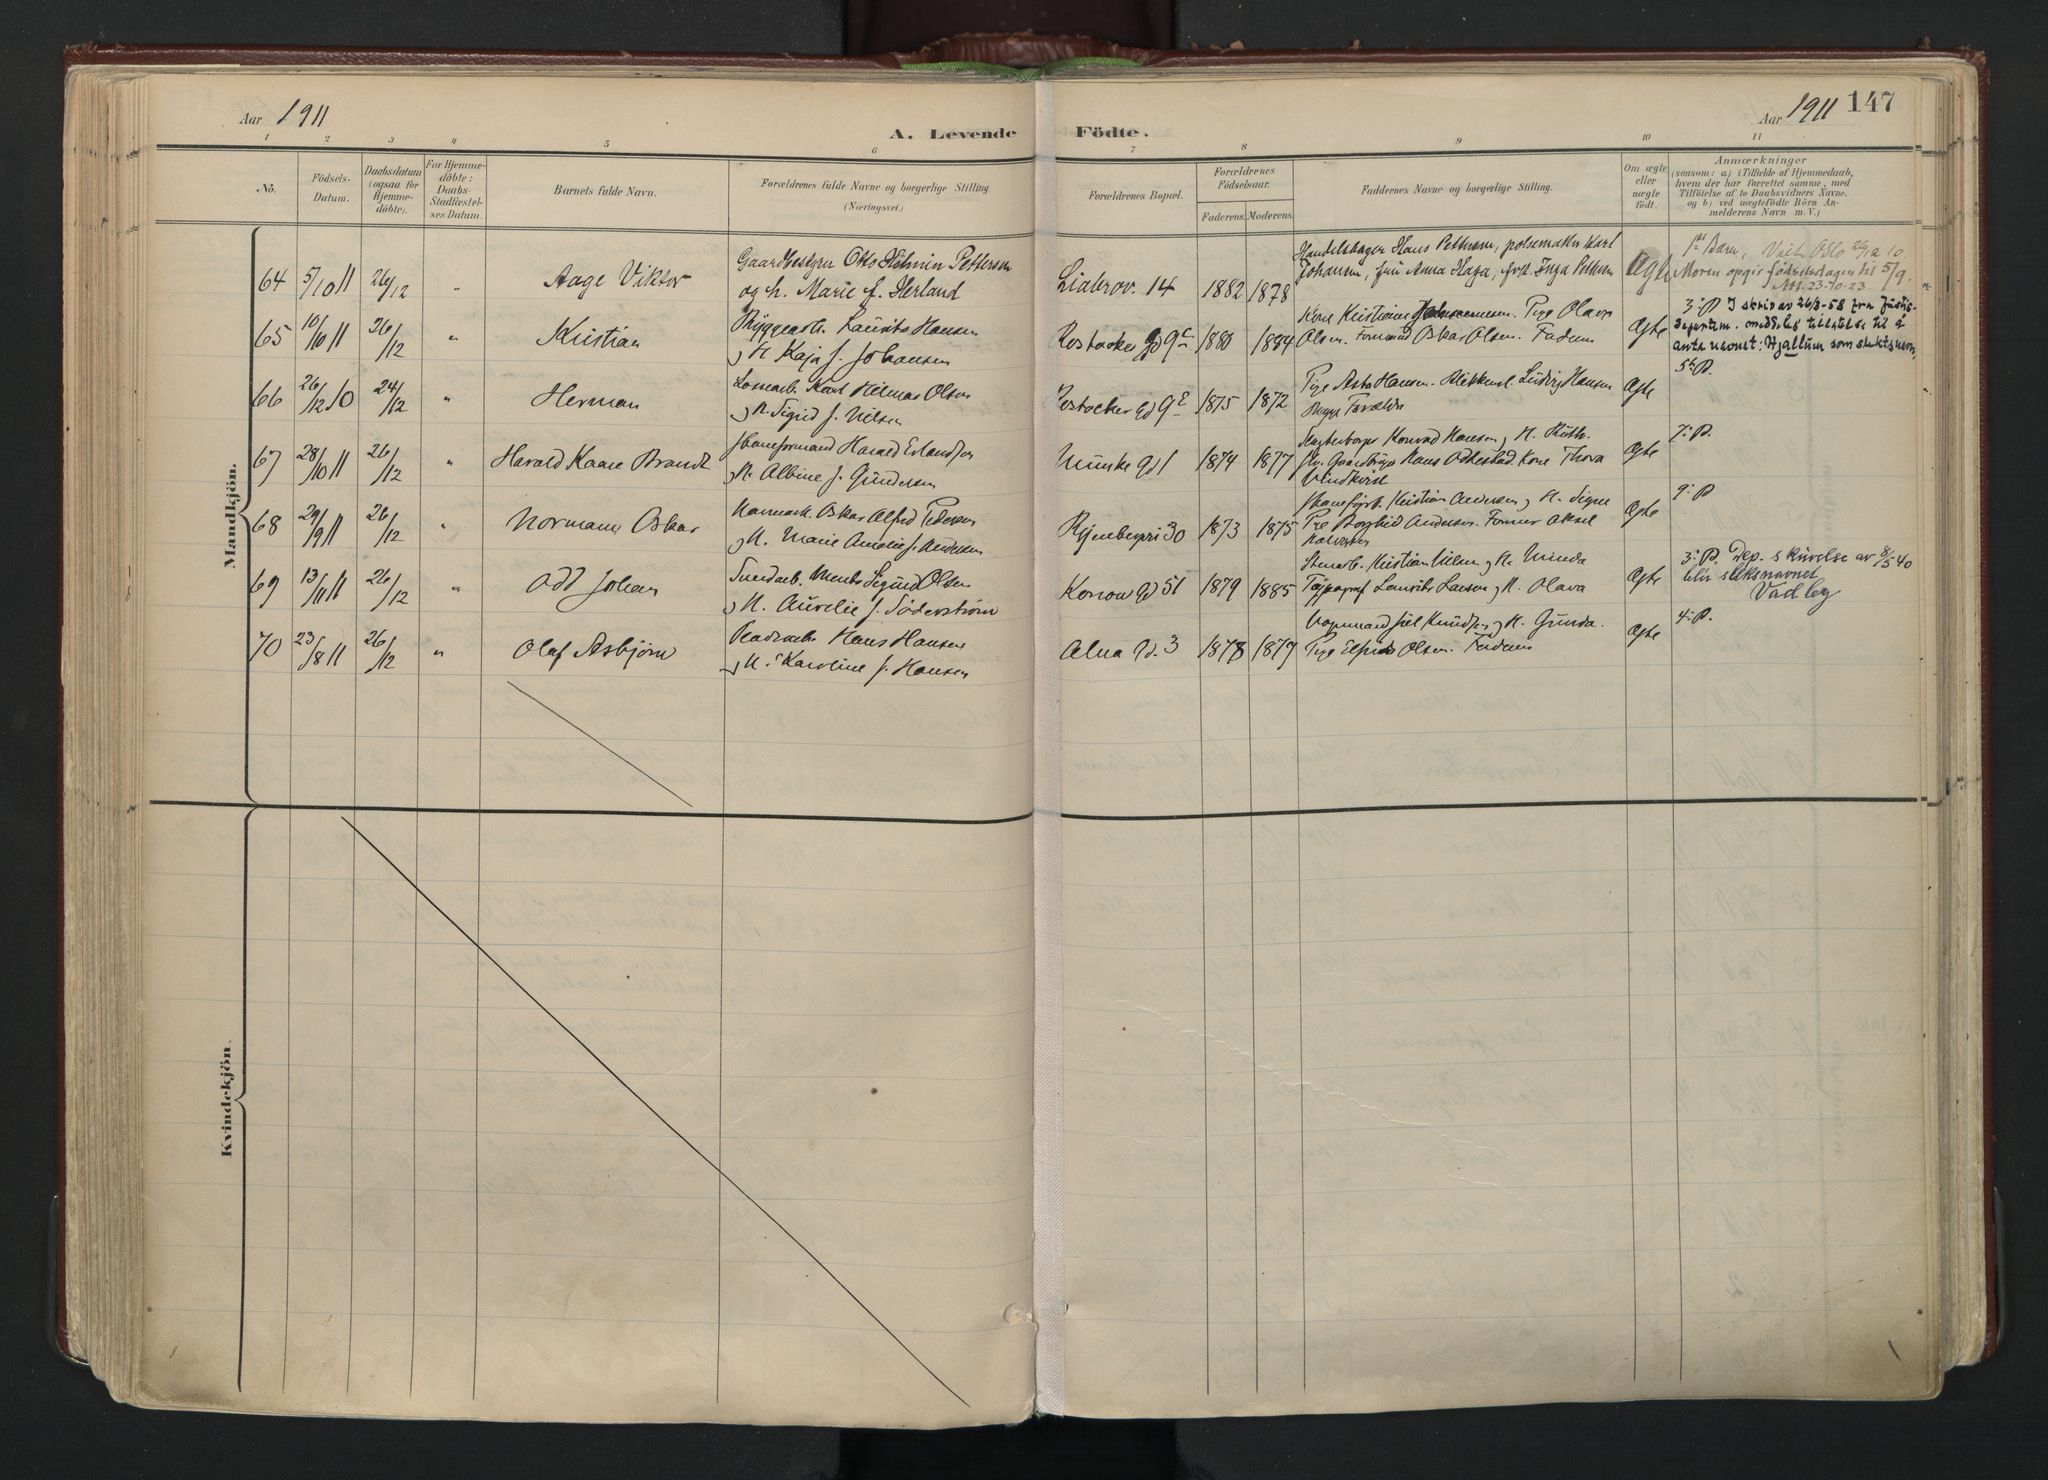 Aar 1911
A. Levende Födte.
Aar 1911 147
1 2 3 4 5 6 7 8 9 10 11
Nö.
Födsels-
Datum.
Daabsdatum
(ogsaa for
Hjemme-
döbte).
For Hjemme-
döbte:
Daabs-
Stadfæstel-
ses Datum.
Barnets fulde Navn.
Forældrenes fulde Navne og borgerlige Stilling
(Næringsvei.)
Forældrenes Bopæl.
Forældrenes
Födselsaar.
Faderens. Moderens.
Faddernes Navne og borgerlige Stilling.
Om ægte
eller
uægte
födt.
Anmærkninger
(saasom: a) i Tilfælde af Hjemmedaab,
hvem der har forrettet samme, med
Tilföielse af to Daabsvidners Navne.
og b) ved uægtefödte Börn An-
melderens Navn m. V.)
Mandkjön.
64 5/10 11 26/12 " Aage Viktor
Gaardbestyrer Otto Hilmin Pettersen
og h. Marie f. Herland
Liabrov. 14 1882 1878
Handelsbager Hans Pettersen, pølsemaker Karl
Johansen, frü Anna Haga, frk. Inga Pettersen
Ægte
1ste Barn,
Moren opgir fødselsdagen til 5/9.
23-10-23
65 10/10 11 26/12 " Kristian
Byggearb. Laurits Hansen
og H Kaja f. Johansen
Rostocker Gd 9c 1880 1884
Kone Kristiane Pige Olava
Olsen. Formand Oskar Olsen. Faderen
Ægte
3. P. I skriv av 26/3-58 fra Justis-
departem. meddeles tillatelse til å
anta navnet: Hjallum som slektsnavn.
66 26/12 10 24/12 " Herman
Karl Hilmar Olsen
og H. Sigrid f. Nilsen
Rostocker Gd 9 1875 1872
Pige Asta Hansen. Blikkensl. Ludvig Hansen
Begge Forældre
Ægte
5. P.
67 28/10 11 26/12 " Harald Kaare Brandt
Baneformand Harald Erlandsen
og H. Albine f. Gundersen
Munke Gd 1 1874 1877
Konrad Hansen og H. Ruth.
Hans Kone Thora
Ægte
7. P.
68 29/9 11 26/12 " Normann Oskar
Oskar Alfred Pedersen
og H. Marie Amalie f. Andersen
Ryenbergvei 30 1873 1875
Kristian Andersen og H. Signe
Pige Borghild Andersen. Former Aksel
Ægte
9. P
69 13/11 11 26/12 " Odd Johan
Sigurd Olsen
og H. Aurelie f. Söderstrøm
Konow Gd 51 1879 1885
Stenarb. Kristian Nilsen og H. Minda
Typograf Laurits Larsen og H. Olava
Ægte
3. P. Dep. skrivelse av 8/5 40
blir slektsnavnet
Vadley
70 23/8 11 26/12 " Olaf Asbjørn
Hans Hansen
og H. Karoline f. Hansen
Alna Gd. 3 1878 1877
Vognmand Knudsen og H. Gunda.
Pige Elfrida Olsen. Faderen
Ægte
4. P.
Kvindekjön.